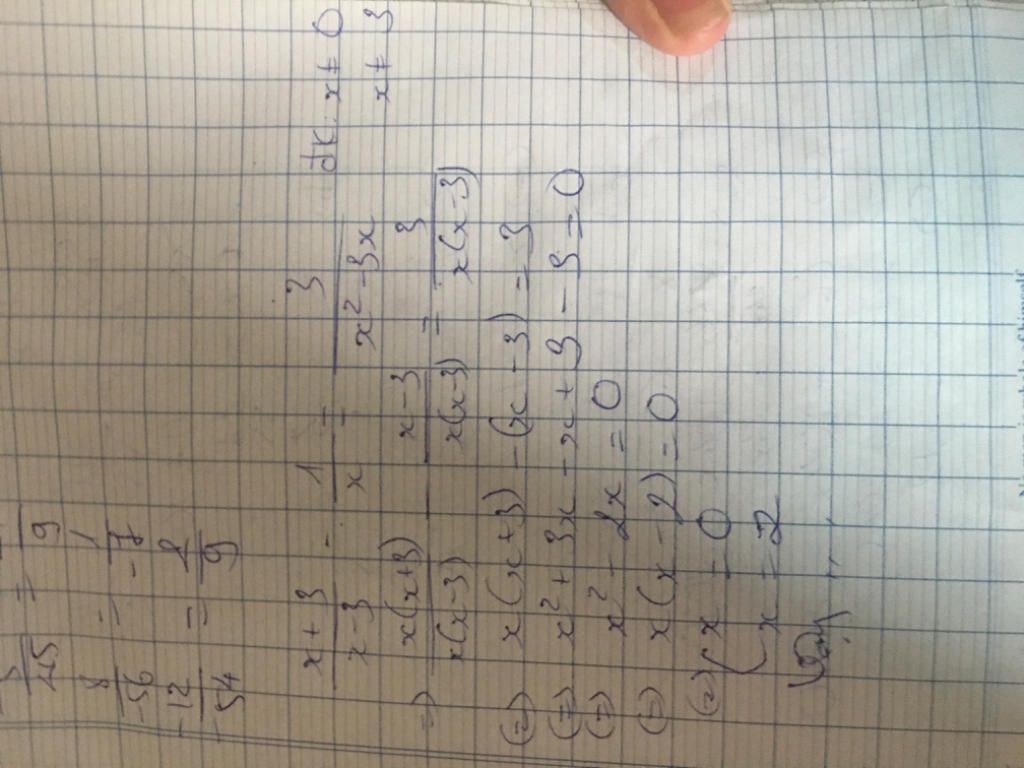 /45 = /9
8/-56 = 1/-7
-12/54 = 2/9
(x+3)/(x-3) - 1/x = 3/(x²-3x) đk: x≠0
x≠3
=> x(x+3)/x(x-3) - (x-3)/x(x-3) = 3/x(x-3)
(=) x(x+3) - (x-3) = 3
(=) x²+3x - x+3 - 3 = 0
(=) x² - 2x = 0
(=) x(x-2) = 0
(=) x = 0
x = 2
Vậy